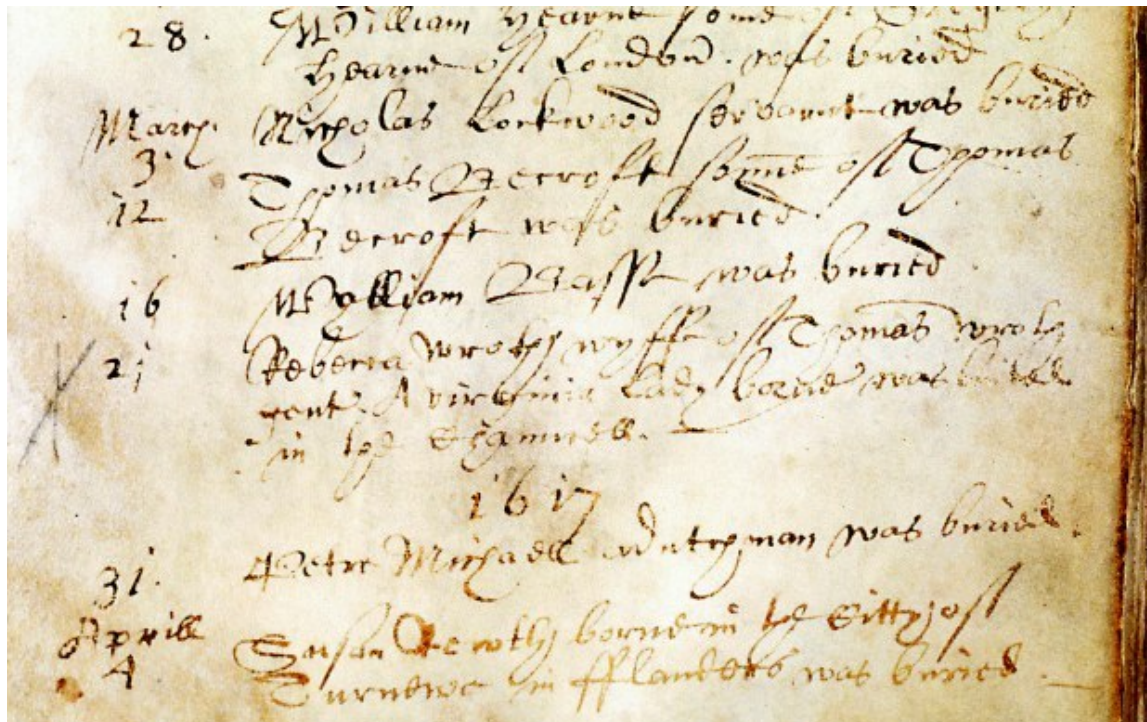 28. William Hearne sonne of
Hearne of London. was buried
March Nicholas Lockwood servannt was buried
3
12 Thomas Becroft sonne of Thomas
Becroft was buried.
16 Wylliam was buried
21 Rebecca wrothe wyffe of Thomas wroth
gent. A virginia Lady borne was buried
in the Chauncell.
1617
31. Petre Michaell a dutchman was buried.
Aprill Susan borne in the Citty of
4 Turnewe in fflanders was buried